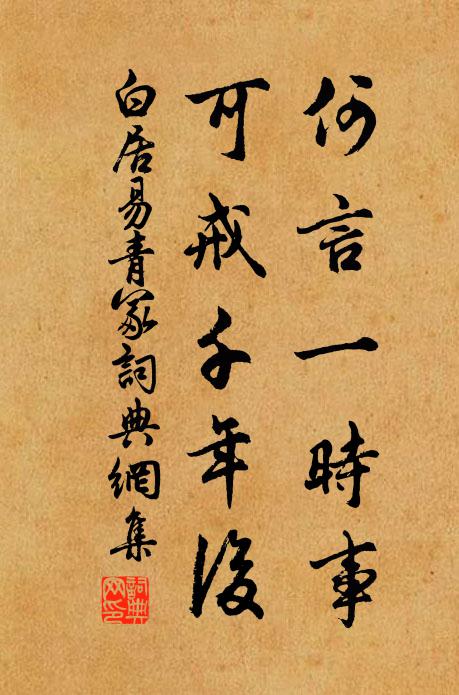 何言一時事
可戒千年後
白居易青冢詞典網集
詞典網印